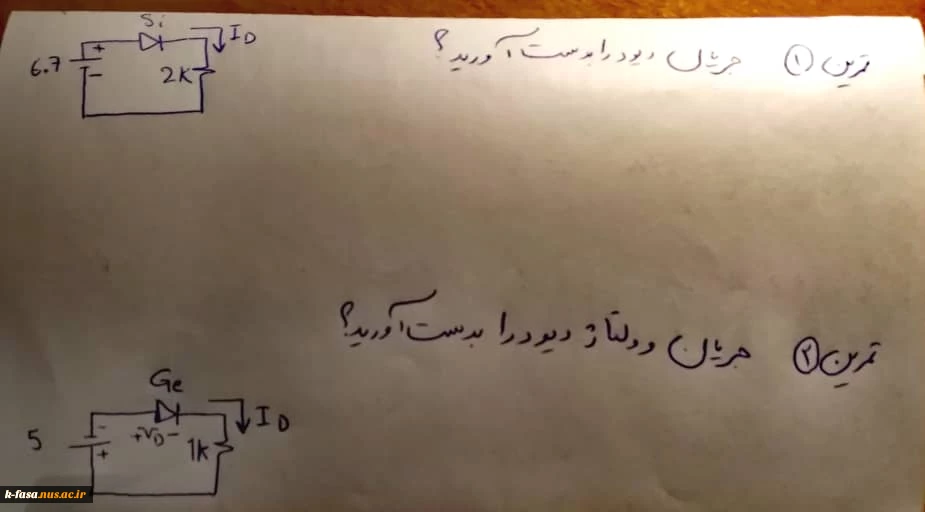 تمرین ۱ جریان دیود را بدست آورید؟
Si
I_D
6.7
+
-
2K
تمرین ۲ جریان و ولتاژ دیود را بدست آورید؟
Ge
I_D
5
-
+
+V_D-
1K
k-fasa.nus.ac.ir